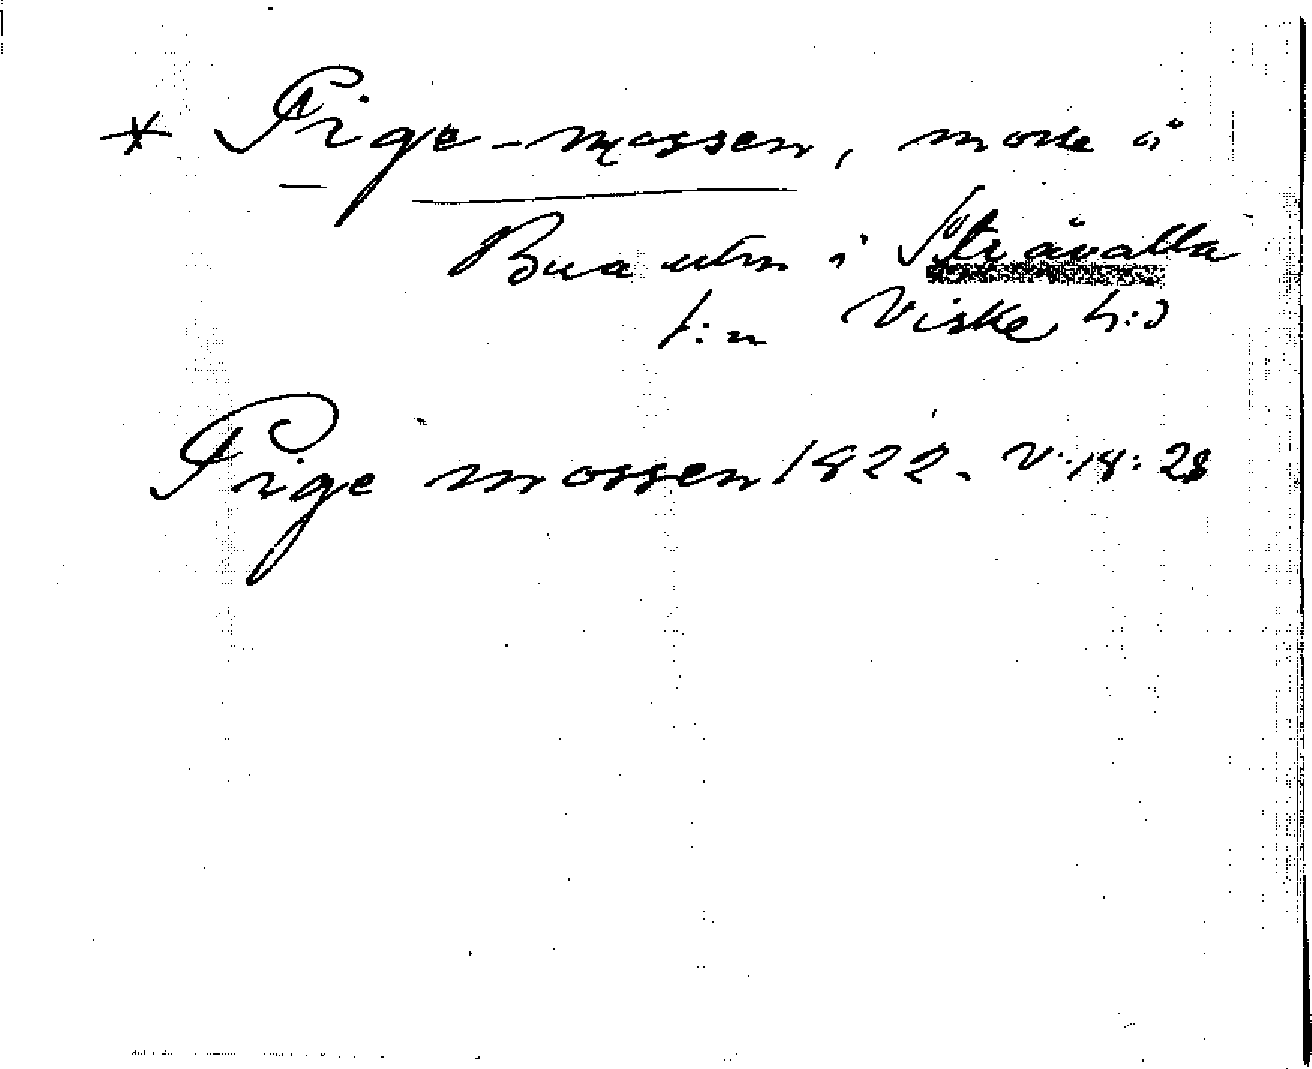 * Pige-mossen, mosse å
Bua utm i Stråvalla
s:n Viske h:d
Pige mossen 1822. V:18:28